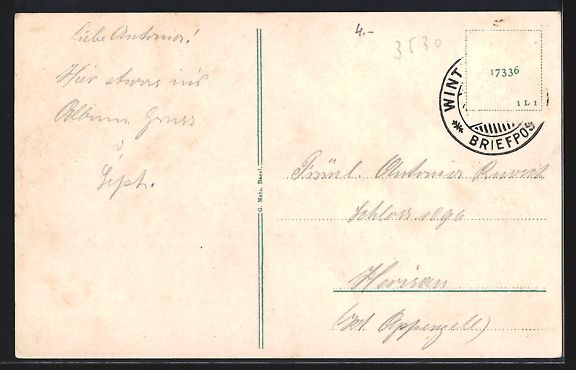 Liebe Antonia!
Hier etwas in's
Album. Gruss
Seph.
4.-
3530
17336
1 L 1
WINT
BRIEFPOS
G. Metz, Basel.
Fräul. Antonia
Schloss
Herisau
(Kt. Appenzell)